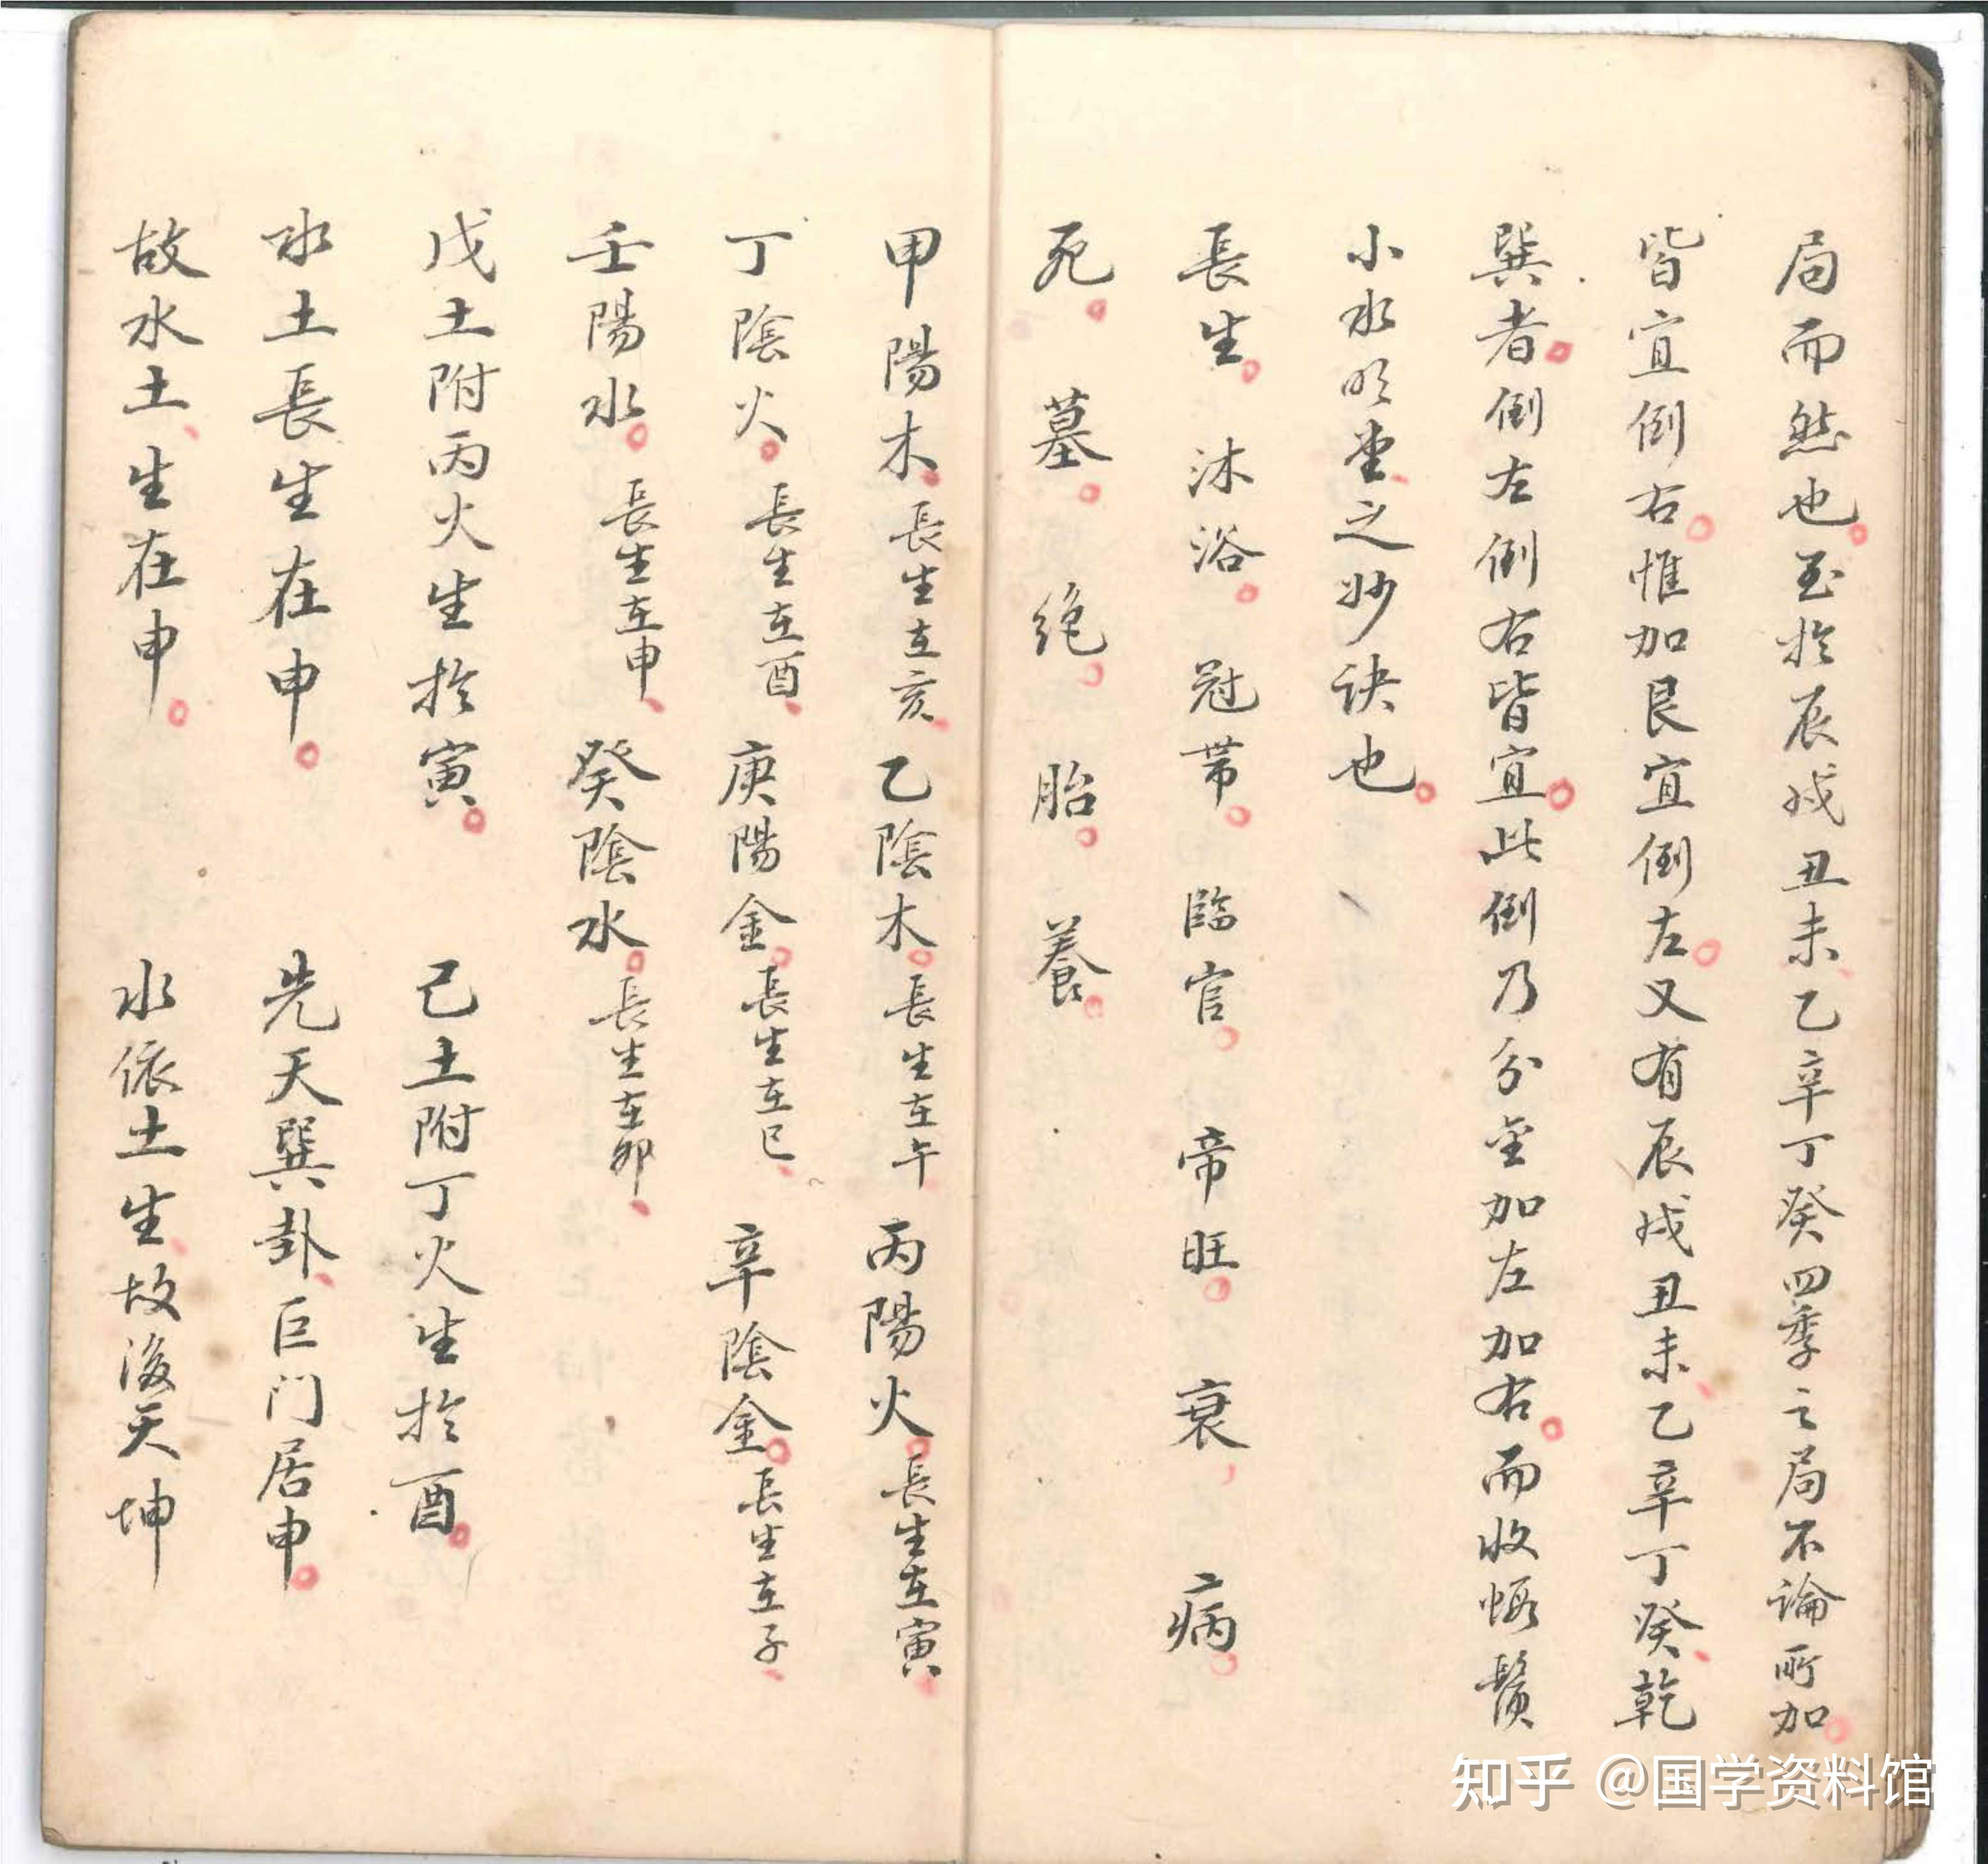 局而然也至於辰戌丑未乙辛丁癸四季之局不論所加
皆宜倒右惟加艮宜倒左又有辰戌丑未乙辛丁癸乾
巽者倒左倒右皆宜此倒乃分金加左加右而收蝦鬚
小水明堂之妙訣也
長生 沐浴 冠帯 臨官 帝旺 衰 病
死 墓 绝 胎 養
甲陽木長生在亥 乙陰木長生在午 丙陽火長生在寅
丁陰火長生在酉 庚陽金長生在巳 辛陰金長生在子
壬陽水長生在申 癸陰水長生在卯
戊土附丙火生於寅 己土附丁火生於酉
水土長生在申 先天巽卦巨门居申
故水土生在申 水依土生故後天坤
知乎 @国学资料馆